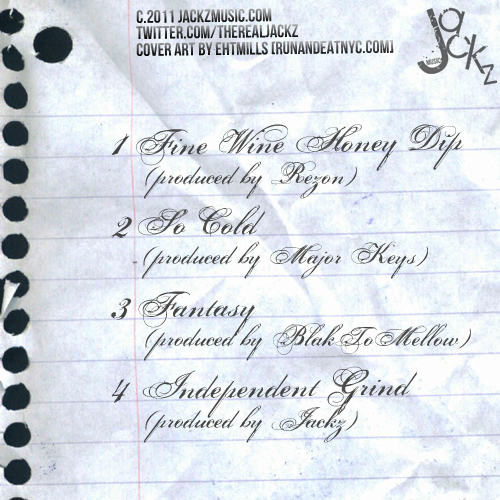 C.2011 JACKZMUSIC.COM
TWITTER.COM/THEREALJACKZ
COVER ART BY EHTMILLS [RUNANDEATNYC.COM]
Jackz
MUSIC
1 Fine Wine Honey Dip
(produced by Rezon)
2 So Cold
(produced by Major Keys)
3 Fantasy
(produced by BlakToMellow)
4 Independent Grind
(produced by Jackz)